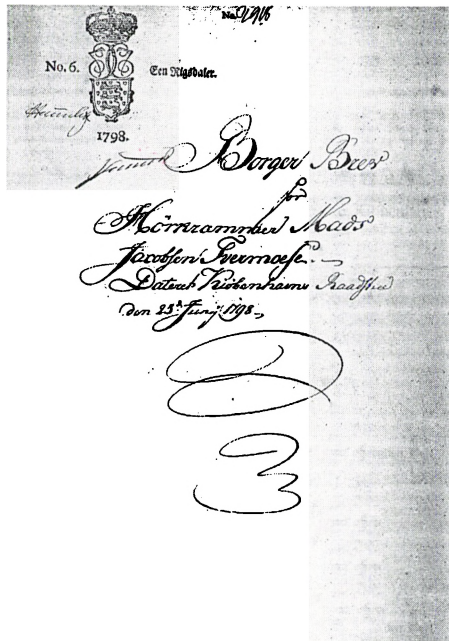 No. 2916
No. 6.
Een Rigsdaler.
1798.
Borger Brev
for
Hörkrammer Mads
Jacobsen Tvermose.
Dateret Kiöbenhavns Raadstue
den 25ᵈ Juny 1798.